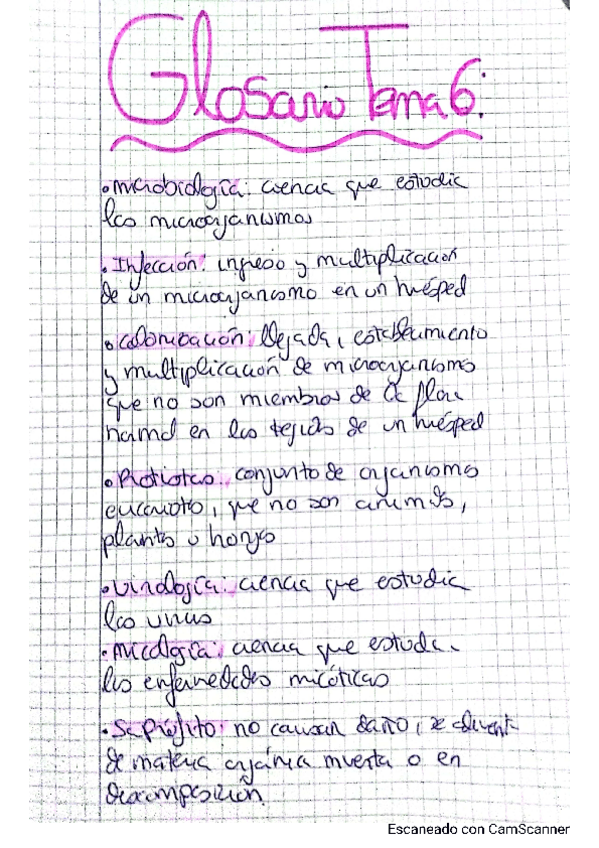 Glosario Tema 6:
• Microbiología: ciencia que estudia
los microorganismos
• Infección: ingreso y multiplicación
de un microorganismo en un huésped
• Colonización: llegada, establecimiento
y multiplicación de microorganismos
que no son miembros de la flora
normal en los tejidos de un huésped
• Protistas: conjunto de organismos
eucariotas, que no son animales,
plantas u hongos
• Virología: ciencia que estudia
los virus
• Micología: ciencia que estudia
las enfermedades micóticas
• Saprófito: no causan daño, se alimentan
de materia orgánica muerta o en
descomposición.
Escaneado con CamScanner